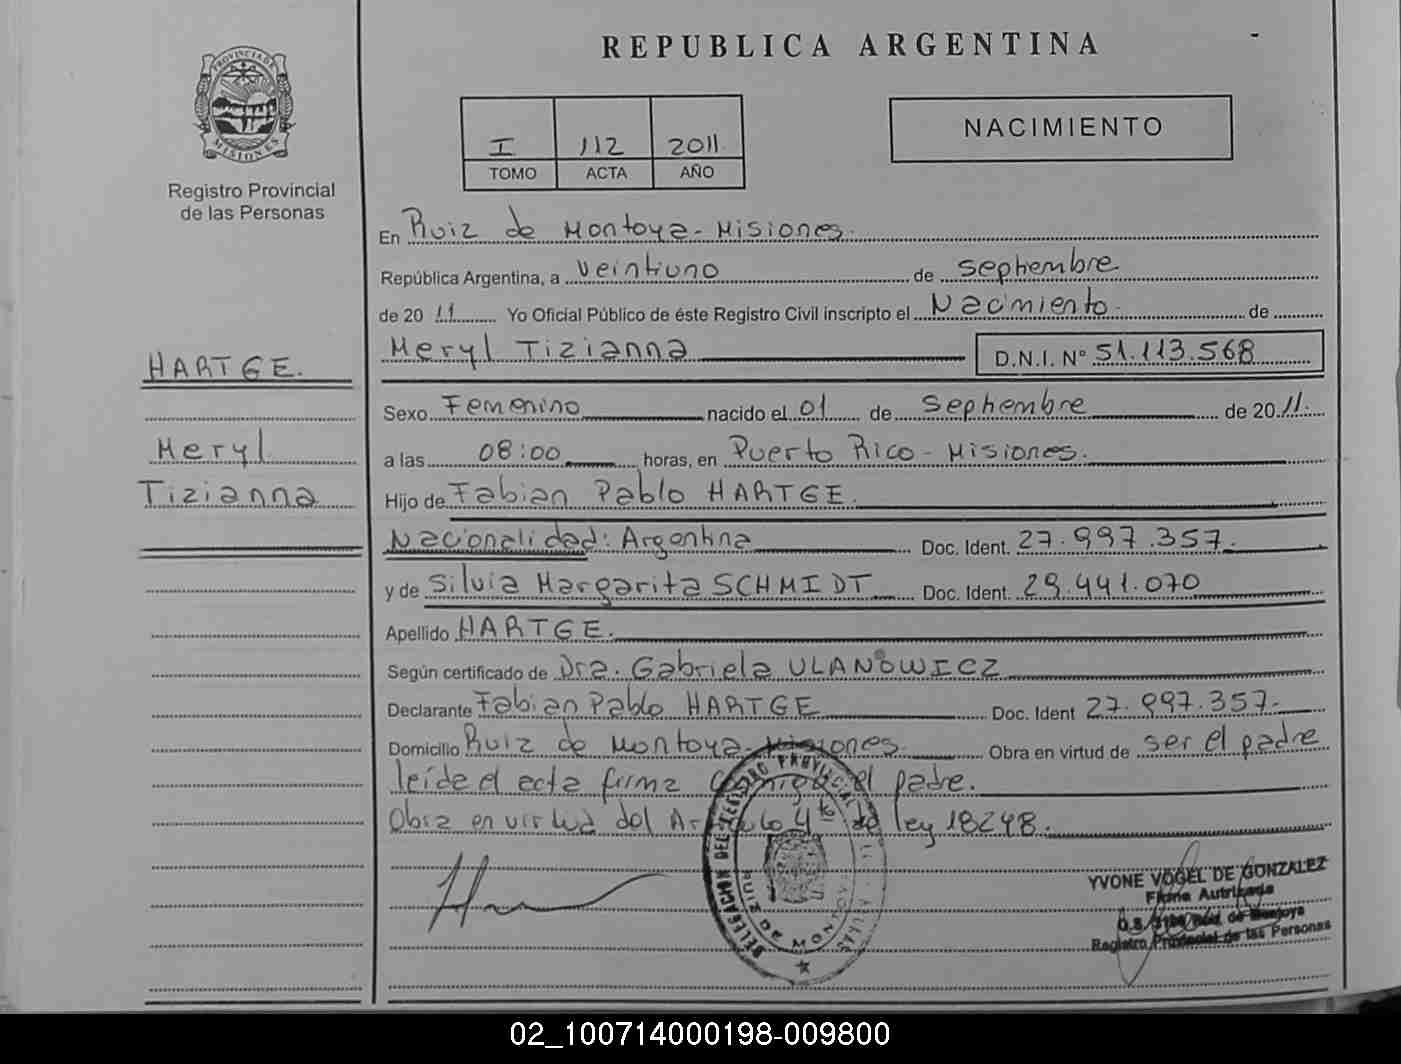 REPUBLICA ARGENTINA
PROVINCIA DE
MISIONES
Registro Provincial
de las Personas
I 112 2011
TOMO ACTA AÑO
NACIMIENTO
En Ruiz de Montoya - Misiones.
República Argentina, a veintiuno de septiembre
de 2011 Yo Oficial Público de éste Registro Civil inscripto el Nacimiento. de
Meryl Tizianna D.N.I. Nº 51.113.568
HARTGE.
Sexo Femenino nacido el 01 de septiembre de 2011.
Meryl
a las 08:00 horas, en Puerto Rico - Misiones.
Tizianna
Hijo de Fabian Pablo HARTGE.
Nacionalidad: Argentina Doc. Ident. 27.997.357.
y de Silvia Margarita SCHMIDT Doc. Ident. 29.441.070
Apellido HARTGE.
Según certificado de Dra. Gabriela ULANOWICZ
Declarante Fabian Pablo HARTGE Doc. Ident 27.997.357.
Domicilio Ruiz de Montoya - Misiones. Obra en virtud de ser el padre
leída el acta firma conmigo el padre.
Obra en virtud del Artículo 4to de ley 18248.
DELEGACION DEL REGISTRO PROVINCIAL DE LAS
RUIZ DE MONTOYA
YVONE VOGEL DE GONZALEZ
Firma Autrizada
Registro Provincial de las Personas
02_100714000198-009800